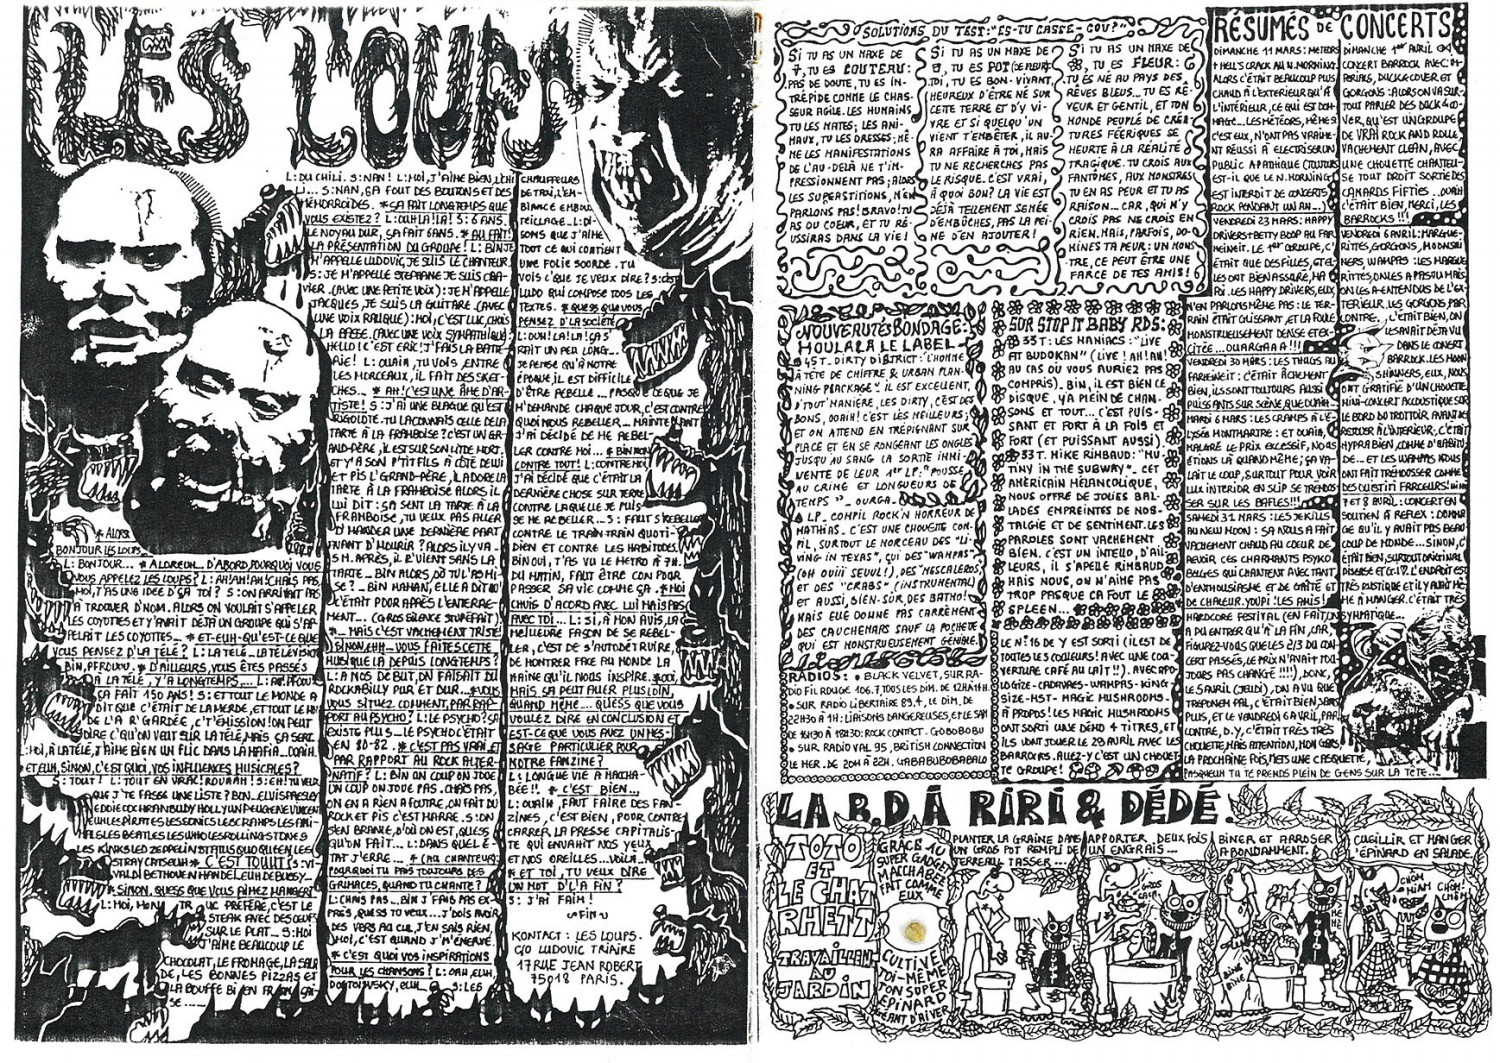 LES LOUPS
* ALORS
BONJOUR LES LOUPS.
L: BONJOUR... * ALOREUH... D'ABORD, POURQUOI VOUS
VOUS APPELEZ LES LOUPS? L: AH! AH! AH! CHAIS PAS,
MOI, T'AS UNE IDÉE D'SA TOI? S: ON ARRIVAIT PAS
À TROUVER D'NOM. ALORS ON VOULAIT S'APPELER
LES COYOTTES ET Y'AVAIT DÉJÀ UN GROUPE QUI S'AP-
PELAIT LES COYOTTES... * ET-EUH-QU'EST-CE QUE
VOUS PENSEZ D'LA TÉLÉ? L: LA TÉLÉ... LA TÉLÉVISION
BIN, PFROUOU. * D'AILLEURS, VOUS ÊTES PASSÉS
À LA TÉLÉ, Y'A LONGTEMPS,...
SA FAIT 150 ANS! S: ET TOUT LE MONDE A
DIT QUE C'ÉTAIT D'LA MERDE, ET TOUT LE MONDE
DE L'A R'GARDÉE, C'T'ÉMISSION! ON PEUT
DIRE C'QU'ON VEUT SUR LA TÉLÉ, MAIS SA SERT.
L: MOI, À LA TÉLÉ, J'AIME BIEN UN FLIC DANS LA MAFIA... OOAIH.
* ET EUH, SINON, C'EST QUOI, VOS INFLUENCES MUSICALES?
S: TOUT! L: TOUT EN VRAC! ROUAAH! S: EH! TU VEUX
QUE J'TE FASSE UNE LISTE? BON... ELVIS PRESLEY
EDDIE COCHRAN BUDDY HOLLY UN PEU GENE VINCENT
EUH LES PIRATES LES SONICS LES CRAMPS LES ANI-
MALS LES BEATLES LES WHO LES ROLLING STONES
LES KINKS LED ZEPPELIN STATUS QUO QUEEN LES
STRAY CATS EUH * C'EST TOUIT? S: VI-
VALDI BETHOVEN HANDEL EUH DEBUSSY...
* SINON, QUESS QUE VOUS AIMEZ MANGER?
L: MOI, MON TRUC PRÉFÉRÉ, C'EST LE
STEAK AVEC DES OEUFS
SUR LE PLAT... S: MOI
J'AIME BEAUCOUP LE
CHOCOLAT, LE FROMAGE, LA SALA
DE, LES BONNES PIZZAS ET
LA BOUFFE BIEN FRANÇAI-
SE...
L: DU CHILI. S: NAN! L: MOI, J'AIME BIEN L'CHI
LI... S: NAN, SA FOUT DES BOUTONS ET DES
HÉMORROÏDES. * SA FAIT LONGTEMPS QUE
VOUS EXISTEZ? L: OUH! LA! LA! S: 6 ANS.
LE NOYAU DUR, SA FAIT 6 ANS. * AU FAIT!
LA PRÉSENTATION DU GROUPE! L: BIN JE
M'APPELLE LUDOVIC, JE SUIS LE CHANTEUR.
S: JE M'APPELLE STÉPHANE JE SUIS CLA-
VIER. (AVEC UNE PETITE VOIX): JE M'APPELLE
JACQUES, JE SUIS LA GUITARE. (AVEC
UNE VOIX RAUQUE): MOI, C'EST LUC, CHUIS
LA BASSE. (AVEC UNE VOIX SYMPATHIQUE):
HELLO! C'EST ERIC! J'FAIS LA BATTE-
RIE! L: OUAIH, TU VOIS, ENTRE
LES MORCEAUX, IL FAIT DES SKET-
CHES... * AH! C'EST UNE ÂME D'AR-
TISTE! S: J'AI UNE BLAGUE QU'EST
RIGOLOTE. TU LA CONNAIS CELLE DE LA
TARTE À LA FRAMBOISE? C'EST UN GR-
AND-PÈRE, IL EST SUR SON LIT DE MORT,
ET Y'A SON P'TIT FILS À CÔTÉ DE LUI
ET PIS L'GRAND-PÈRE, IL ADORE LA
TARTE À LA FRAMBOISE ALORS IL
LUI DIT: SA SENT LA TARTE À LA
FRAMBOISE, TU VEUX PAS ALLER
D'MANDER UNE DERNIÈRE PART
AVANT D'MOURIR? ALORS IL Y VA.
5 M. APRÈS, IL R'VIENT SANS LA
TARTE... BIN ALORS, OÙ TU L'AS MI-
SE?... BIN MAMAN, ELLE A DIT QU'
C'ÉTAIT POUR APRÈS L'ENTERRE-
MENT... (GROS SILENCE STUPÉFAIT)
*... MAIS C'EST VACHEMENT TRISTE!
SINON, EUH... VOUS FAITES CETTE
MUSIQUE LÀ DEPUIS LONGTEMPS?
L: À NOS DÉBUT, ON FAISAIT DU
ROCKABILLY PUR ET DUR... * VOUS
VOUS SITUEZ COMMENT, PAR RAP-
PORT AU PSYCHO? L: LE PSYCHO? SA
EXISTE PLUS... LE PSYCHO C'ÉTAIT
EN 80-82. * C'EST PAS VRAI, ET
PAR RAPPORT AU ROCK ALTER-
NATIF? L: BIN ON COUP ON JOUE
UN COUP ON JOUE PAS. CHAIS PAS,
ON EN A RIEN À FOUTRE, ON FAIT DU
ROCK ET PIS C'EST MARRE. S: ON
S'EN BRANLE, D'OÙ ON EST, QUESS
QU'ON FAIT... L: DANS QUEL É-
TAT J'ERRE... * (AU CHANTEUR):
POURQUOI TU FAIS TOUJOURS DES
GRIMACES, QUAND TU CHANTE?
L: CHAIS PAS... BIN J'FAIS PAS EX-
PRÈS, QUESS TU VEUX... J'DOIS AVOIR
DES VERS AU CUL, J'EN SAIS RIEN.
MOI, C'EST QUAND J'M'ÉNERVE.
* C'EST QUOI VOS INSPIRATIONS
POUR LES CHANSONS? L: OAH, EUH,
DOSTOÏEVSKY, EUH... S: LES
CHAUFFEURS
DE TAXI, L'EM-
BIANCE EMBOU-
TEILLAGE... L: DI-
SONS QUE J'AIME
TOUT CE QUI CONTIENT
UNE FOLIE SOURDE. TU
VOIS C'QUE JE VEUX DIRE? S: C'EST
LUDO QUI COMPOSE TOUS LES
TEXTES. * QUESS QUE VOUS
PENSEZ D'LA SOCIÉTÉ
L: OUH! LA! LA! ÇA S'
RAIT UN PEU LONG...
JE PENSE QU'À NOTRE
ÉPOQUE, IL EST DIFFICILE
D'ÊTRE REBELLE... PASQUE CE QUE JE
M'DEMANDE CHAQUE JOUR, C'EST CONTRE
QUOI NOUS REBELLER... MAINTENANT
J'AI DÉCIDÉ DE ME REBEL-
LER CONTRE MOI... * BIN NON
CONTRE TOUT! L: CONTRE MOI
J'AI DÉCIDÉ QUE C'ÉTAIT LA
DERNIÈRE CHOSE SUR TERRE
CONTRE LAQUELLE JE PUIS-
SE ME REBELLER... S: FAUT S'REBELLER
CONTRE LE TRAIN-TRAIN QUOTI-
DIEN ET CONTRE LES HABITUDES.
BIN OUI, T'AS VU LE MÉTRO À 7H.
DU MATIN, FAUT ÊTRE CON POUR
PASSER SA VIE COMME ÇA. * MOI
CHUIS D'ACORD AVEC LUI MAIS PAS
AVEC TOI... L: SI, À MON AVIS, LA
MEILLEURE FASON DE SE REBEL-
LER, C'EST DE S'AUTODÉTRUIRE,
DE MONTRER FACE AU MONDE LA
HAINE QU'IL NOUS INSPIRE. * OUI,
MAIS SA PEUT ALLER PLUS LOIN,
QUAND MÊME... QUESS QUE VOUS
VOULEZ DIRE EN CONCLUSION ET
EST-CE QUE VOUS AVEZ UN MES-
SAGE PARTICULIER POUR
NOTRE FANZINE?
L: LONGUE VIE À MACCHA-
BÉE!!. * C'EST BIEN...
L: OUAIH, FAUT FAIRE DES FAN-
ZINES, C'EST BIEN, POUR CONTRE-
CARRER LA PRESSE CAPITALIS-
TE QUI ENVAHIT NOS YEUX
ET NOS OREILLES... VOILÀ...
* ET TOI, TU VEUX DIRE
UN MOT D'LA FIN?
S: J'AI FAIM!
~FIN~
KONTACT: LES LOUPS.
C/O LUDOVIC TRIAIRE
17 RUE JEAN ROBERT
75018 PARIS.
SOLUTIONS DU TEST: "ES-TU CASSE-COU?"
SI TU AS UN MAXE DE
✝, TU ES COUTEAU:
PAS DE DOUTE, TU ES IN-
TRÉPIDE COMME LE CHAS-
SEUR AGILE. LES HUMAINS
TU LES MATES; LES ANI-
MAUX, TU LES DRESSES; MÊ-
ME LES MANIFESTATIONS
DE L'AU-DELÀ NE T'IM-
PRESSIONNENT PAS; ALORS
LES SUPERSTITIONS, N'EN
PARLONS PAS! BRAVO! TU
AS DU COEUR, ET TU RÉ-
USSIRAS DANS LA VIE!
SI TU AS UN MAXE DE
, TU ES POT (DE FLEUR):
TOI, TU ES BON-VIVANT,
HEUREUX D'ÊTRE NÉ SUR
CETTE TERRE ET D'Y VI-
VRE ET SI QUELQU'UN
VIENT T'EMBÊTER, IL AU-
RA AFFAIRE À TOI, MAIS
TU NE RECHERCHES PAS
LE RISQUE. C'EST VRAI,
À QUOI BON? LA VIE EST
DÉJÀ TELLEMENT SEMÉE
D'EMBÛCHES, PAS LA PEI-
NE D'EN AJOUTER!
SI TU AS UN MAXE DE
, TU ES FLEUR:
TU ES NÉ AU PAYS DES
RÊVES BLEUS... TU ES RÊ-
VEUR ET GENTIL, ET TON
MONDE PEUPLÉ DE CRÉA-
TURES FÉÉRIQUES SE
HEURTE À LA RÉALITÉ
TRAGIQUE. TU CROIS AUX
FANTÔMES, AUX MONSTRES
TU EN AS PEUR ET TU AS
RAISON... CAR, QUI N'Y
CROIS PAS NE CROIS EN
RIEN. MAIS, PARFOIS, DO-
MINES TA PEUR: UN MONS
TRE, CE PEUT ÊTRE UNE
FARCE DE TES AMIS!
NOUVEAUTÉS BONDAGE:
HOULALA LE LABEL-
45T. DIRTY DISTRICT: "L'HOMME
À TÊTE DE CHIFFRE & URBAN PLAN-
NING PLACKAGE". IL EST EXCELLENT,
D'TOUT'MANIÈRE, LES DIRTY, C'EST DES
BONS, OOAIH! C'EST LES MEILLEURS;
ET ON ATTEND EN TRÉPIGNANT SUR
PLACE ET EN SE RONGEANT LES ONGLES
JUSQU'AU SANG LA SORTIE IMMI-
NENTE DE LEUR 1er LP: "POUSSE
AU CRIME ET LONGUEURS DE
TEMPS"... OURGA.
LP. COMPIL ROCK'N HORREUR DE
MATHIAS. C'EST UNE CHOUETTE COM-
PIL, SURTOUT LE MORCEAU DES "LI-
VING IN TEXAS", ÇUI DES "WAMPAS",
(OH OUIII SEUUL!), DES "MESCALEROS"
ET DES "CRABS" (INSTRUMENTAL)
ET AUSSI, BIEN-SÛR, DES BATMO!
MAIS ELLE DONNE PAS CARRÉMENT
DES CAUCHEMARS SAUF LA POCHETTE
QUI EST MONSTRUEUSEMENT GÉNIALE.
RADIOS: • BLACK VELVET, SUR RA-
DIO FIL ROUGE 106.7, TOUS LES DIM. DE 12H À 14H.
• SUR RADIO LIBERTAIRE 89.4, LE DIM. DE
22H30 À 1H: LIAISONS DANGEREUSES, ET LE SAM
DE 16H30 À 18H30: ROCK CONTACT. GOBOBOBU
• SUR RADIO VAL 95, BRITISH CONNECTION
LE MER. DE 20H À 22H. GABABUBOBABALO
SUR STOP IT BABY RDS:
33T: LES MANIACS: "LIVE
AT BUDOKAN" (LIVE! AH! AH!
AU CAS OÙ VOUS AURIEZ PAS
COMPRIS). BIN, IL EST BIEN CE
DISQUE, Y'A PLEIN DE CHAN-
SONS ET TOUT... C'EST PUIS-
SANT ET FORT À LA FOIS ET
FORT (ET PUISSANT AUSSI).
33T. MIKE RIMBAUD: "MU-
TINY IN THE SUBWAY". CET
AMÉRICAIN MÉLANCOLIQUE,
NOUS OFFRE DE JOLIES BAL-
LADES EMPREINTES DE NOS-
TALGIE ET DE SENTIMENT. LES
PAROLES SONT VACHEMENT
BIEN. C'EST UN INTELLO, D'AIL
LEURS, IL S'APELLE RIMBAUD
MAIS NOUS, ON N'AIME PAS
TROP PASQUE CA FOUT LE
SPLEEN...
LE N°16 DE Y EST SORTI (IL EST DE
TOUTES LES COULEURS! AVEC UNE COU-
VERTURE CAFÉ AU LAIT!!). AVEC APO-
LOGIZE-CADAVRES-WAMPAS-KING
SIZE-HST- MAGIC MUSHROOMS.
À PROPOS! LES MAGIC MUSHROOMS
ONT SORTI UNE DÉMO 4 TITRES, ET
ILS VONT JOUER LE 29 AVRIL AVEC LES
BARROCKS. ALLEZ-Y C'EST UN CHOUET
TE GROUPE!
RÉSUMÉS DE CONCERTS
DIMANCHE 11 MARS: METEORS
+ HELL'S CRACK AU N.MORNING.
ALORS C'ÉTAIT BEAUCOUP PLUS
CHAUD À L'EXTERIEUR QU'À
L'INTÉRIEUR, CE QUI EST DOM-
MAGE... LES MÉTÉORS, MÊME SI
C'EST EUX, N'ONT PAS VRAIME-
NT RÉUSSI À ELECTRISER UN
PUBLIC APATHIQUE (TOUJOURS
EST-IL QUE LE N.MORNING
EST INTERDIT DE CONCERTS
ROCK PENDANT UN AN...)
VENDREDI 23 MARS: HAPPY
DRIVERS + BETTY BOOP AU FAR-
HEINEIT. LE 1er GROUPE, C'
ÉTAIT QUE DES FILLES, ET EL-
LES ONT BIEN ASSURÉ, MA
FOI. LES HAPPY DRIVERS, EUX,
N'EN PARLONS MÊME PAS: LE TER-
RAIN ÉTAIT GLISSANT, ET LA FOULE
MONSTRUEUSEMENT DENSE ET EX-
CITÉE... OUARGAA A!!!
VENDREDI 30 MARS: LES THUGS AU
FARHEINEIT: C'ÉTAIT ÂCHEMENT
BIEN, ILS SONT TOUJOURS AUSSI
PUISSANTS SUR SCÈNE, QUE OUAIH...
MARDI 6 MARS: LES CRAMPS À L'É-
LYSÉE MONTMARTRE: ET OUAIH,
MALGRÉ LE PRIX EXCESSIF, NOUS
ÉTIONS LÀ QUAND MÊME; SA VA-
LAIT LE COUP, SURTOUT POUR VOIR
LUX INTERIOR EN SLIP SE TRÉMOUS
SER SUR LES BAFLES!!!
SAMEDI 31 MARS: LES JEKILLS
AU NEW MOON: SA NOUS A FAIT
VACHEMENT CHAUD AU COEUR DE
REVOIR CES CHARMANTS PSYKO
BELGES QUI CHANTENT AVEC TANT
D'ENTHOUSIASME ET DE GAÎTÉ ET
DE CHALEUR. YOUPI! LES AMIS!
HARDCORE FESTIVAL (EN FAIT, ON
A PU ENTRER QU'À LA FIN, CAR,
FIGUREZ-VOUS QUE LES 2/3 DU CON-
CERT PASSÉS, LE PRIX N'AVAIT TOU-
JOURS PAS CHANGÉ!!!!), DONC,
LE 5 AVRIL (JEUDI), ON A VU QUE
TREPONEM PAL, C'ÉTAIT BIEN SANS
PLUS, ET LE VENDREDI 6 AVRIL, PAR
CONTRE, D.Y, C'ÉTAIT TRÈS TRÈS
CHOUETTE, MAIS ATTENTION, MON GARS,
LA PROCHAINE FOIS, METS UNE CASQUETTE,
PASQUEUH TU TE PRENDS PLEIN DE GENS SUR LA TÊTE...
DIMANCHE 1er AVRIL
CONCERT BARROCK AVEC:
, DUCK & COVER ET
GORGONS: ALORS ON VA SUR-
TOUT PARLER DES DUCK & CO-
VER, QU'EST UN GROUPE
DE VRAI ROCK AND ROLL
VACHEMENT CLEAN, AVEC
UNE CHOUETTE CHANTEU-
SE TOUT DROIT SORTIE DES
CANARDS FIFTIES... OUAIH
C'ÉTAIT BIEN, MERCI, LES
BARROCKS!!!
VENDREDI 6 AVRIL: MARGUE-
RITTES, GORGONS, MOONSHI
NERS, WAMPAS: LES MARGUE
RITTES, ON LES A PAS VU MAIS
ON LES A ENTENDUS DE L'EX-
TERIEUR. LES GORGONS, PAR
CONTRE, C'ÉTAIT BIEN, ON
LES AVAIT DÉJÀ VU
DANS LE CONCERT
BARROCK. LES MOON
SHINNERS, EUX, NOUS
ONT GRATIFIÉ D'UN CHOUETTE
MINI-CONCERT ACCOUSTIQUE SUR
LE BORD DU TROTTOIR AVANT DE
RESTER À L'INTÉRIEUR, C'ÉTAIT
HYPRA BIEN, COMME D'HABITU-
DE... ET LES WAMPAS NOUS
ONT FAIT TRÉMOUSSER COMME
DES OUISTITI FARCEURS!
7 ET 8 AVRIL: CONCERT EN
SOUTIEN À REFLEX: DOMMA
GE QU'IL Y AVAIT PAS BEAU-
COUP DE MONDE... SINON, C'
ÉTAIT BIEN, SURTOUT ORIGINAL
DISEASE ET G.I.Z. L'ENDROIT EST
TRÈS RUSTIQUE ET IL Y AVAIT MÊ-
ME À MANGER. C'ÉTAIT TRÈS
SYMPATIQUE...
LA B.D À RIRI & DÉDÉ.
TOTO
ET
LE CHAT
RHETT
TRAVAILLAN
AU
JARDIN
GRÂCE AU
SUPER GADGET
MACCHABÉE
FAIT COMME
EUX
CULTIVE
TOI-MÊME
TON SUPER
ÉPINARD
GÉANT D'HIVER
PLANTER LA GRAINE DANS
UN GROS POT REMPLI DE
TERREAU. TASSER...
APPORTER, DEUX FOIS
UN ENGRAIS...
GROS
CACA
BINER ET ARROSER
ABONDAMENT.
BINE!!
BINE
HÉ
HÉ
CUEILLIR ET MANGER
L'ÉPINARD EN SALADE.
CHOM
MIAM
CHOM!
CHOM